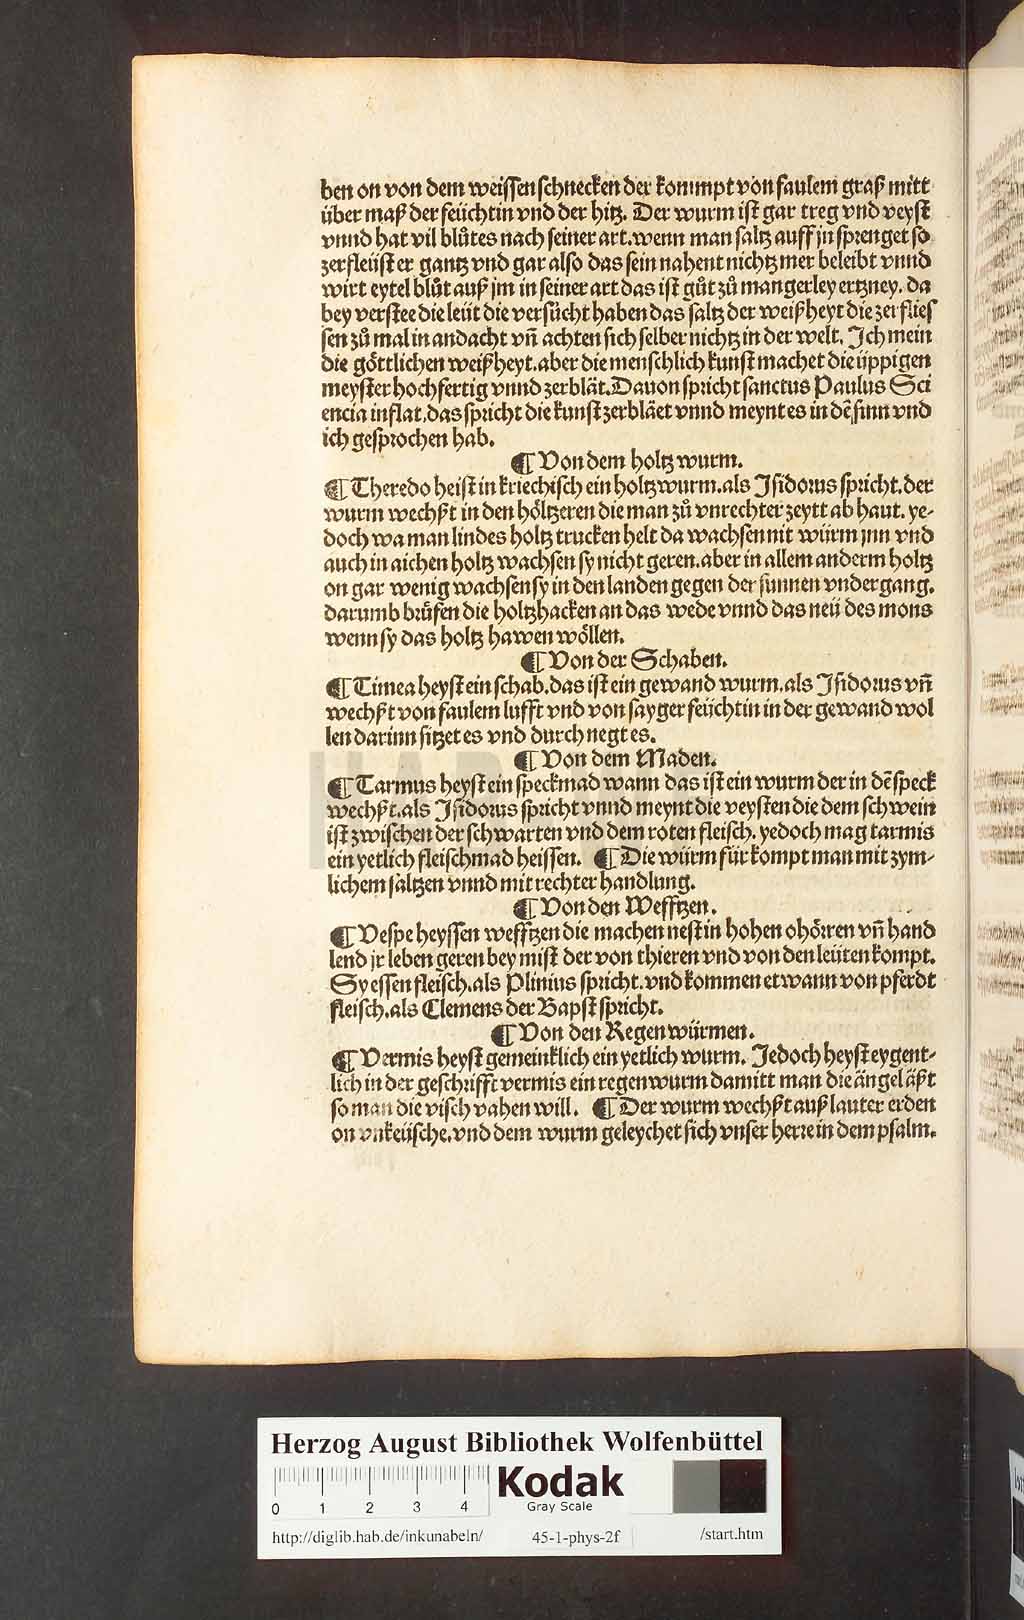 ben on von dem weissen schnecken der kommpt von faulem graß mitt
über maß der feüchtin vnd der hitz. Der wurm ist gar treg vnd veyst
vnnd hat vil blůtes nach seiner art. wenn man saltz auff jn sprenget so
zerfleüst er gantz vnd gar also das sein nahent nichtz mer beleibt vnnd
wirt eytel blůt auß jm in seiner art das ist gůt zů mangerley ertzney. da
bey verstee die leüt die versůcht haben das saltz der weißheyt die zerflies
sen zů mal in andacht vñ achten sich selber nichtz in der welt. Ich mein
die göttlichen weißheyt. aber die menschlich kunst machet die üppigen
meyster hochfertig vnnd zerblät. Dauon spricht sanctus Paulus Sci
encia inflat. das spricht die kunst zerbläet vnnd meynt es in dẽ sinn vnd
ich gesprochen hab.
¶ Von dem holtz wurm.
¶ Theredo heist in kriechisch ein holtzwurm. als Isidorus spricht. der
wurm wechßt in den höltzeren die man zů vnrechter zeytt ab haut. ye-
doch wa man lindes holtz trucken helt da wachsen mit würm jnn vnd
auch in aichen holtz wachsen sy nicht geren. aber in allem anderm holtz
on gar wenig wachsen sy in den landen gegen der sunnen vndergang.
darumb brůfen die holtzhacken an das wede vnnd das neü des mons
wenn sy das holtz hawen wöllen.
¶ Von der Schaben.
¶ Timea heyst ein schab. das ist ein gewand wurm. als Isidorus vñ
wechßt von faulem lufft vnd von sayger feüchtin in der gewand wol
len darinn sitzet es vnd durch negt es.
¶ Von dem Maden.
¶ Tarmus heyst ein speckmad wann das ist ein wurm der in dẽ speck
wechßt. als Isidorus spricht vnnd meynt die veysten die dem schwein
ist zwischen der schwarten vnd dem roten fleisch. yedoch mag tarmis
ein yetlich fleischmad heissen. ¶ Die würm für kompt man mit zym-
lichem saltzen vnnd mit rechter handlung.
¶ Von den Wefftzen.
¶ Vespe heyssen wefftzen die machen nest in hohen ohörren vñ hand
lend jr leben geren bey mist der von thieren vnd von den leüten kompt.
Sy essen fleisch. als Plinius spricht. vnd kommen etwann von pferdt
fleisch. als Clemens der Bapst spricht.
¶ Von den Regen würmen.
¶ Vermis heyst gemeinklich ein yetlich wurm. Jedoch heyst eygent-
lich in der geschrifft vermis ein regenwurm damitt man die ängel äßt
so man die visch vahen will. ¶ Der wurm wechßt auß lauter erden
on vnkeüsche. vnd dem wurm geleychet sich vnser herre in dem psalm.
Herzog August Bibliothek Wolfenbüttel
0 1 2 3 4
Kodak
Gray Scale
http://diglib.hab.de/inkunabeln/ 45-1-phys-2f /start.htm